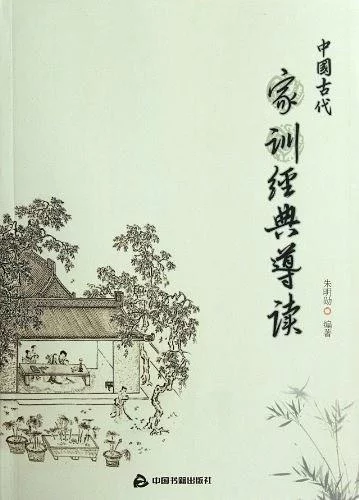 中國古代
家训經典導读
朱明勋 编著
中国书籍出版社